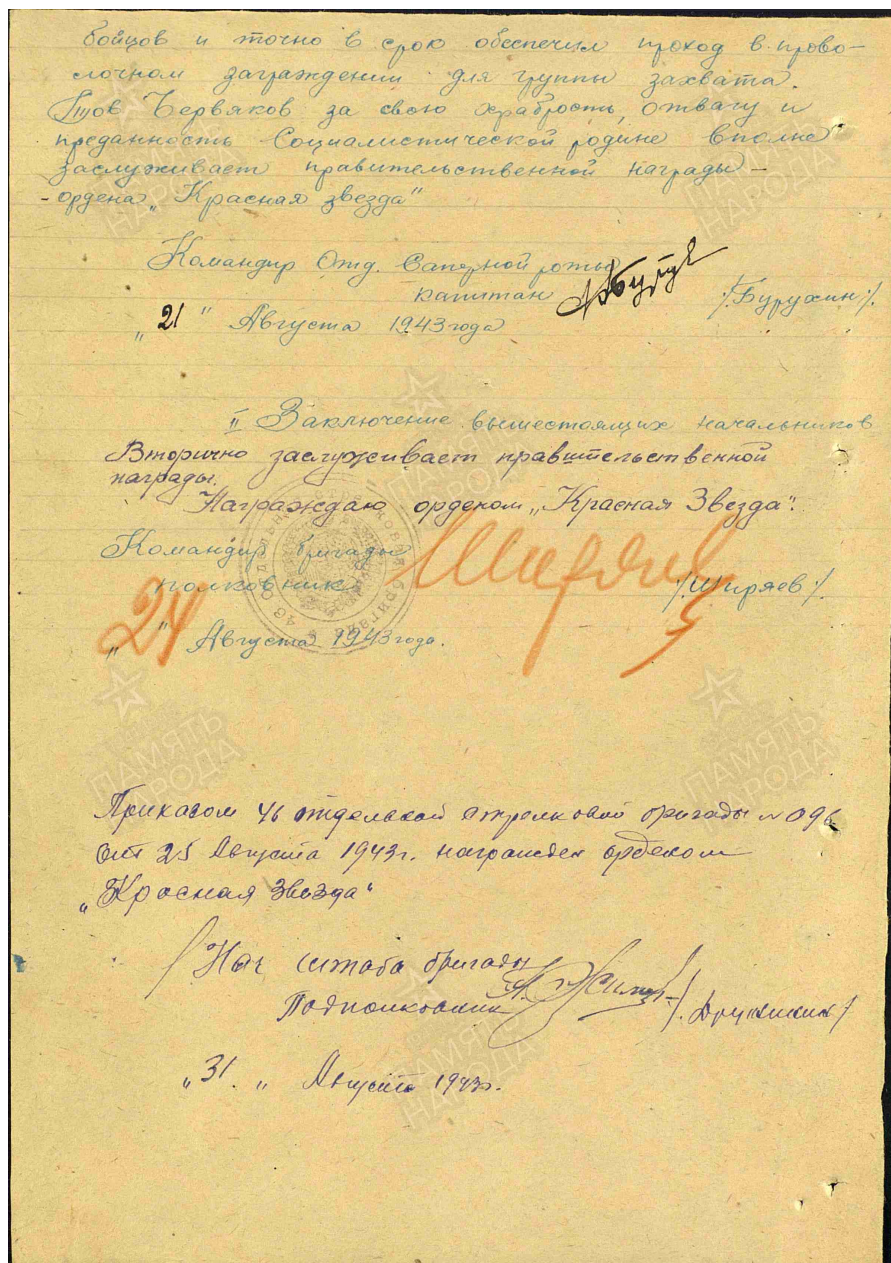 бойцов и точно в срок обеспечил проход в прово-
лочном заграждении для группы захвата.
Тов Червяков за свою храбрость, отвагу и
преданность Социалистической родине вполне
заслуживает правительственной награды -
- ордена „Красная звезда"
Командир Отд. Саперной роты
капитан /Бурухин/.
„21" Августа 1943 года
II Заключение вышестоящих начальников
Вторично заслуживает правительственной
награды.
Награждаю орденом „Красная Звезда".
Командир бригады
полковник /Ширяев/.
„24" Августа 1943 года.
Приказом 46 отдельной стрелковой бригады № 096
от 25 Августа 1943г. награжден орденом
„Красная Звезда"
Нач штаба бригады
Подполковник /Дружинин/
„31" Августа 1943г.
ПАМЯТЬ
НАРОДА